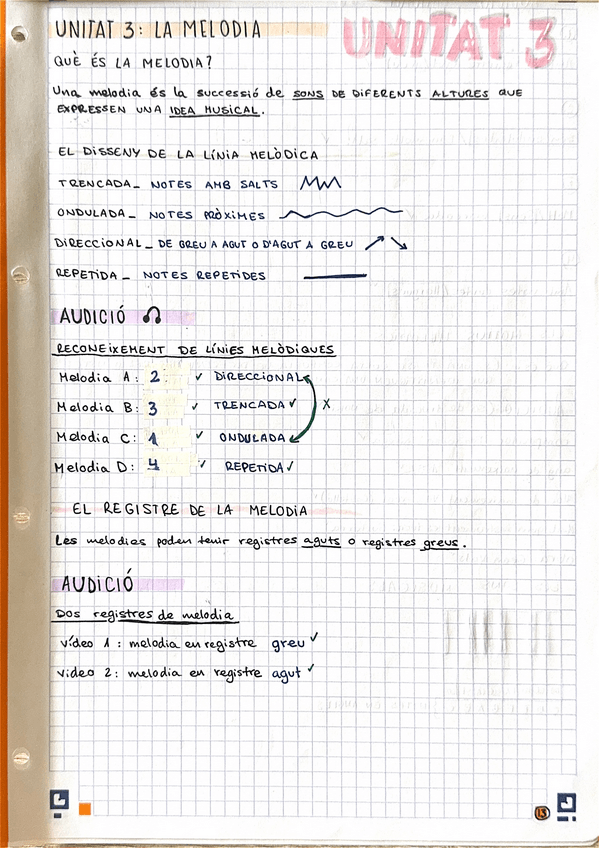 UNITAT 3: LA MELODIA
UNITAT 3
QUÈ ÉS LA MELODIA?
Una melodia és la successió de SONS DE DIFERENTS ALTURES QUE
EXPRESSEN UNA IDEA MUSICAL.
EL DISSENY DE LA LÍNIA MELÒDICA
TRENCADA_ NOTES AMB SALTS
ONDULADA_ NOTES PRÒXIMES
DIRECCIONAL_ DE GREU A AGUT O D'AGUT A GREU
REPETIDA_ NOTES REPETIDES
AUDICIÓ
RECONEIXEMENT DE LÍNIES MELÒDIQUES
Melodia A: 2 ✓ DIRECCIONAL
Melodia B: 3 ✓ TRENCADA ✓ X
Melodia C: 1 ✓ ONDULADA
Melodia D: 4 ✓ REPETIDA ✓
EL REGISTRE DE LA MELODIA
Les melodies poden tenir registres aguts o registres greus.
AUDICIÓ
DOS registres de melodia
vídeo 1: melodia en registre greu ✓
video 2: melodia en registre agut ✓
13